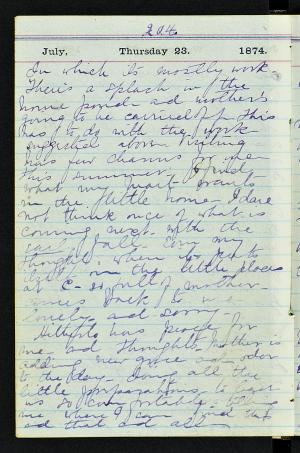 204
July, Thursday 23. 1874.
In which its mostly work
There's a splash in the
home pond and mother's
going to be carried off. This
has to do with the work
suggested above. Visiting
has few charms for me
this summer. I find
what my heart wants
in the little home. I dare
not think once of what is
coming next with the
early fall. Even my
thought when it
in the little places
of C- mother
comes back to me
lonely and sorry.
Hitherto has for
me and thoughts mother is
adding new grace and odor
to the day doing all the
little preparations to
us so comfortable
me where I can find this
and that and all